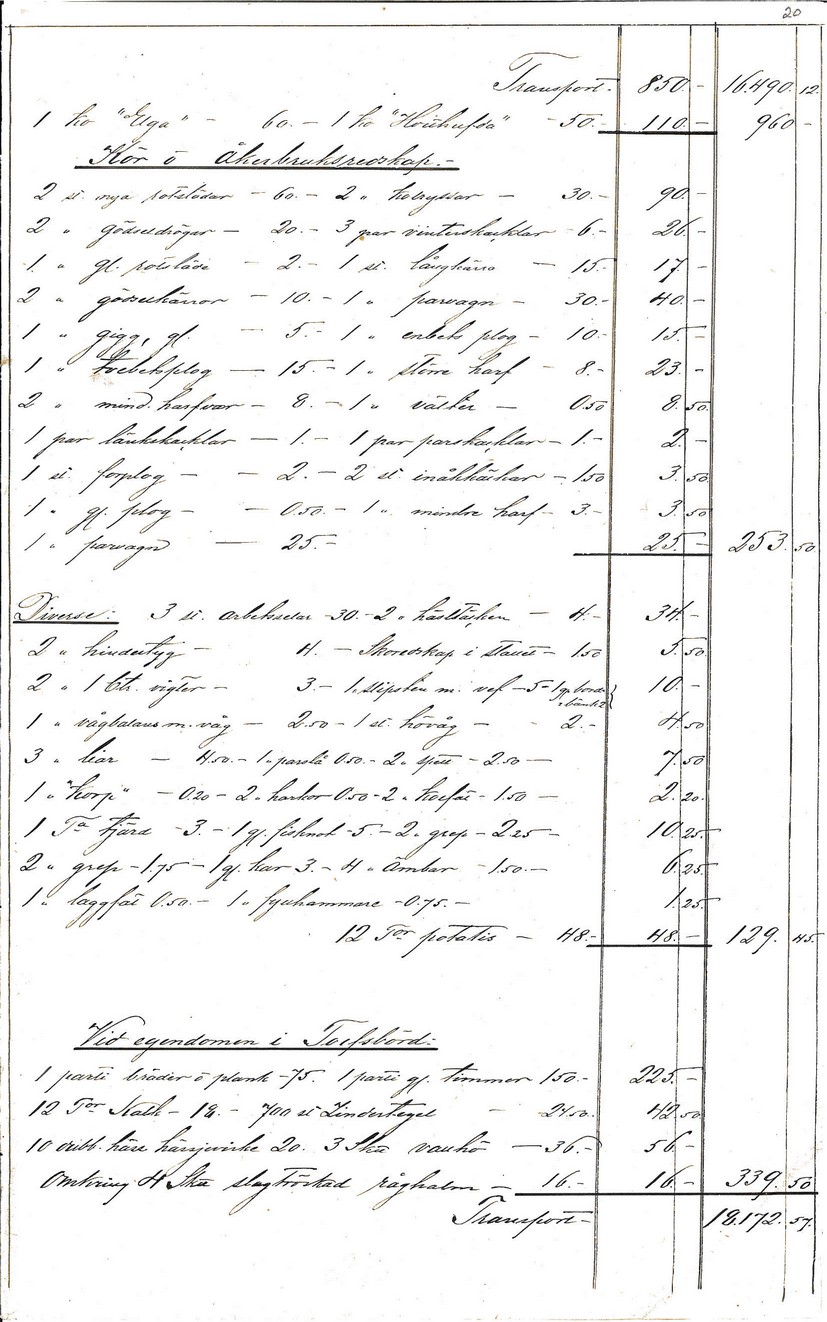 20
Transport - 850. - 16.490. 12.
1 ko "Elga" - 60. - 1 ko "Hvithufda" - 50. - 110. - 960 -
Kör o åkerbruksredskap. -
2 st. nya rotslädar - 60. - 2 " kolryssar - 30. - 90. -
2 " gödseldrögar - 20. - 3 par vinterskacklar - 6. - 26. -
1. " gl. rotsläde - 2. - 1 st. långkärra - 15. - 17. -
2 " gödselkärror - 10. - 1 " parvagn - 30. - 40. -
1 " gigg, gl. - 5. - 1 " enbets plog - 10. - 15. -
1 " tvebetsplog - 15. - 1 " större harf - 8. - 23. -
2 " mind. harfvar - 8. - 1 " välter - 0.50 8. 50.
1 par länkskacklar - 1. - 1 par parskacklar - 1. - 2. -
1 st. forplog - - 2. - 2 st. - 1.50 3. 50
1 " gl. plog - - 0.50. - 1 " mindre harf - 3. - 3. 50
1 " parvagn - 25. - 25. - 253. 50.
Diverse: 3 st. arbetsselar - 30. - 2 " hästtäcken - 4. - 34. -
2 " hindertyg - 4. - Skoredskap i stallet - 1.50 5. 50.
2 " 1 Ctr. vigter - 3. - 1 " slipsten m. vef - 5 - 1 gl. bord o bänk 2 10. -
1 " vågbalans m. våg - 2.50 - 1 st. hövåg - - 2. - 4. 50
3 " liar - 4.50. - 1 " parslå 0.50. - 2 " spett - 2.50 - 7. 50
1 " "Korp" - 0.20 - 2 " harkor 0.50 - 2 " - 1.50 - 2. 20.
1 Ta tjärd - 3. - 1 gl. fisknot - 5. - 2 " grep - 2.25 - 10. 25.
2 " grep - 1.75 - 1 gl. kar 3. - 4 " ämbar - 1.50. - 6. 25.
1 " laggfat 0.50. - 1 " fyrhammare - 0.75. - 1. 25.
12 Tor potatis - 48. - 48. - 129. 45.
Vid egendomen i Toefsbord:
1 parti bräder o plank - 75. 1 parti gl. timmer 150. - 225. -
12 Tor Kalk - 18. - 700 st Zindertegel - 24.50. 42. 50
10 dubb. häss hässjevirke 20. 3 Ska vallhö - 36. - 56 -
Omkring 4 Ska slagtröskad råghalm - 16. - 16. - 339. 50
Transport - 18.172. 57.